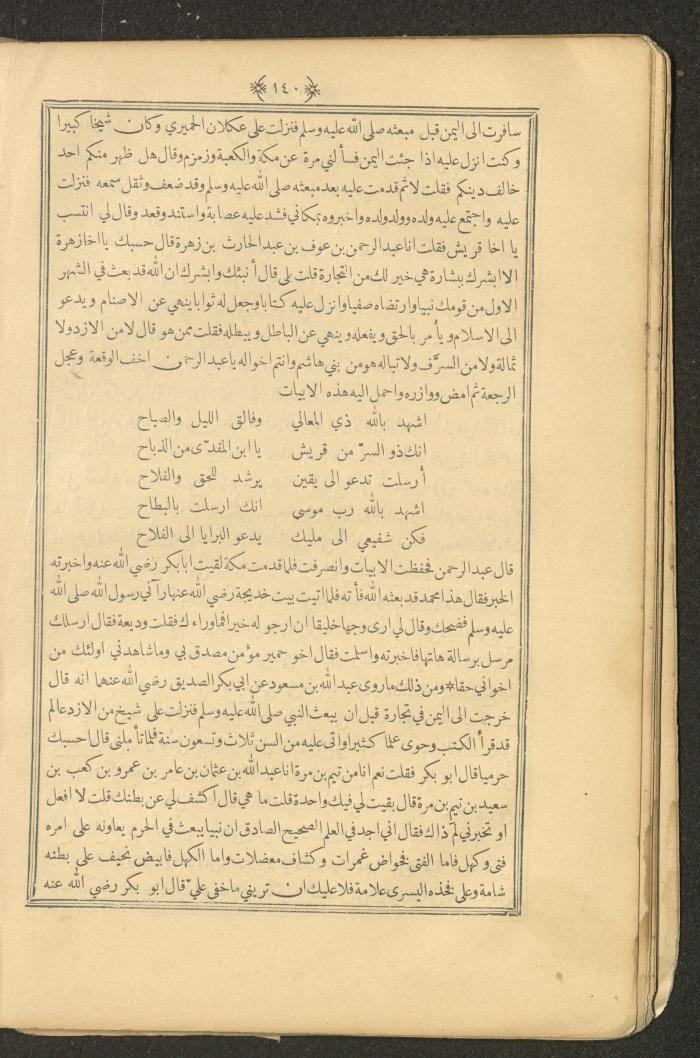 ١٤٠
سافرت الى اليمن قبل مبعثه صلى الله عليه وسلم فنزلت على عكلان الحميري وكان شيخا كبيرا
وكنت انزل عليه اذا جئت اليمن فسألني مرة عن مكة والكعبة وزمزم وقال هل ظهر منكم احد
خالف دينكم فقلت لا ثم قدمت عليه بعد مبعثه صلى الله عليه وسلم وقد ضعف وثقل سمعه فنزلت
عليه واجتمع عليه ولده وولد ولده واخبروه بمكاني فشد عليه عصابة واستند وقعد وقال لي انتسب
يا اخا قريش فقلت انا عبد الرحمن بن عوف بن عبد الحارث بن زهرة قال حسبك يا اخا زهرة
الا ابشرك ببشارة هي خير لك من التجارة قلت بلى قال أنبئك وابشرك ان الله قد بعث في الشهر
الاول من قومك نبيا وارتضاه صفيا وانزل عليه كتابا وجعل له ثوابا ينهى عن الاصنام ويدعو
الى الاسلام ويأمر بالحق ويفعله وينهى عن الباطل ويبطله فقلت ممن هو قال لا من الازد ولا
ثمالة ولا من السرَّف ولا تباله هو من بني هاشم وانتم اخواله يا عبد الرحمن اخف الوقعة وعجل
الرجعة ثم امض ووازره واحمل اليه هذه الابيات
اشهد بالله ذي المعالي وفالق الليل والصباح
انك ذو السرّ من قريش يا ابن المفدّى من الذباح
أرسلت تدعو الى يقين يرشد للحق والفلاح
اشهد بالله رب موسي انك ارسلت بالبطاح
فكن شفيعي الى مليك يدعو البرايا الى الفلاح
قال عبد الرحمن فحفظت الابيات وانصرفت فلما قدمت مكة لقيت ابا بكر رضي الله عنه واخبرته
الخبر فقال هذا محمد قد بعثه الله فأته فلما اتيت بيت خديجة رضي الله عنها رآني رسول الله صلى الله
عليه وسلم فضحك وقال لي ارى وجها خليقا ان ارجو له خيرا فما وراءك فقلت وديعة فقال ارسلك
مرسل برسالة هاتها فاخبرته واسلمت فقال اخو حمير مؤمن مصدق بي وما شاهدني اولئك من
اخواني حقا* ومن ذلك ما روى عبد الله بن مسعود عن ابي بكر الصديق رضي الله عنهما انه قال
خرجت الى اليمن في تجارة قبل ان يبعث النبي صلى الله عليه وسلم فنزلت على شيخ من الازد عالم
قد قرأ الكتب وحوى علما كثيرا واتى عليه من السن ثلاث وتسعون سنة فلما تأملني قال احسبك
حرميا قال ابو بكر فقلت نعم انا من تيم بن مرة انا عبد الله بن عثمان بن عامر بن عمرو بن كعب بن
سعيد بن تيم بن مرة قال بقيت لي فيك واحدة قلت ما هي قال اكشف لي عن بطنك قلت لا افعل
او تخبرني لمَ ذاك فقال اني اجد في العلم الصحيح الصادق ان نبيا يبعث في الحرم يعاونه على امره
فتى وكهل فاما الفتى فخواض غمرات وكشاف معضلات واما الكهل فابيض نحيف على بطنه
شامة وعلى فخذه اليسرى علامة فلا عليك ان تريني ما خفي عليّ قال ابو بكر رضي الله عنه